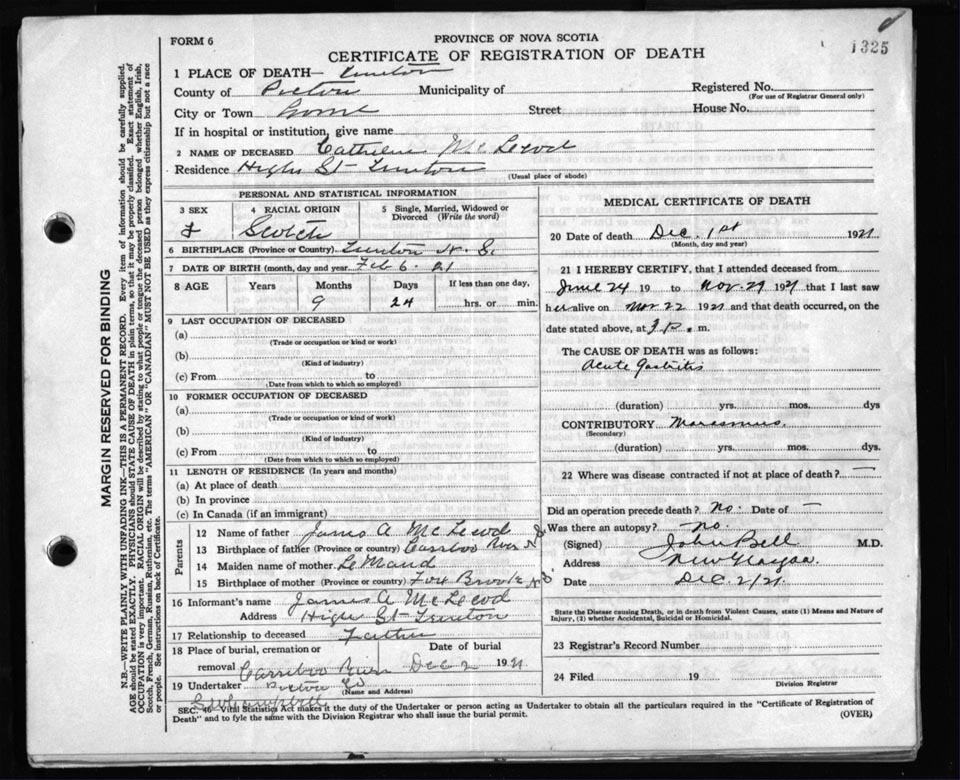 FORM 6
PROVINCE OF NOVA SCOTIA
CERTIFICATE OF REGISTRATION OF DEATH
1325
1 PLACE OF DEATH— Trenton
County of Pictou Municipality of Registered No.
(For use of Registrar General only)
City or Town Home Street House No.
If in hospital or institution, give name
2 NAME OF DECEASED Catherine McLeod
Residence High St Trenton
(Usual place of abode)
PERSONAL AND STATISTICAL INFORMATION
3 SEX
4 RACIAL ORIGIN
5 Single, Married, Widowed or Divorced (Write the word)
f Scotch
6 BIRTHPLACE (Province or Country) Trenton N. S.
7 DATE OF BIRTH (month, day and year) Feb 6. 21
8 AGE Years Months Days If less than one day,
9 24 hrs. or min.
9 LAST OCCUPATION OF DECEASED
(a)
(Trade or occupation or kind or work)
(b)
(Kind of industry)
(c) From to
(Date from which to which so employed)
10 FORMER OCCUPATION OF DECEASED
(a)
(Trade or occupation or kind of work)
(b)
(Kind of industry)
(c) From to
(Date from which to which so employed)
11 LENGTH OF RESIDENCE (In years and months)
(a) At place of death
(b) In province
(c) In Canada (if an immigrant)
Parents
12 Name of father James A McLeod
13 Birthplace of father (Province or country) Carriboo River N S
14 Maiden name of mother
15 Birthplace of mother (Province or country) Fox Brook N S
16 Informant's name James A McLeod
Address High St Trenton
17 Relationship to deceased Father
18 Place of burial, cremation or removal Date of burial
Carriboo River Dec 2 1921
Pictou Co
19 Undertaker
(Name and Address)
Campbell
MEDICAL CERTIFICATE OF DEATH
20 Date of death Dec. 1st 1921
(Month, day and year)
21 I HEREBY CERTIFY, that I attended deceased from
June 24 19 to Nov. 29 1921 that I last saw
her alive on Nov 22 1921 and that death occurred, on the
date stated above, at 3 P. m.
The CAUSE OF DEATH was as follows:
Acute Gastritis
(duration) yrs. mos. dys
CONTRIBUTORY Marasmus.
(Secondary)
(duration) yrs. mos. dys.
22 Where was disease contracted if not at place of death? —
Did an operation precede death? no. Date of —
Was there an autopsy? no.
(Signed) John Bell M.D.
Address New Glasgow
Date Dec. 2/21.
State the Disease causing Death, or in death from Violent Causes, state (1) Means and Nature of
Injury, (2) whether Accidental, Suicidal or Homicidal.
23 Registrar's Record Number
24 Filed 19
Division Registrar
SEC. 46 Vital Statistics Act makes it the duty of the Undertaker or person acting as Undertaker to obtain all the particulars required in the "Certificate of Registration of
Death" and to fyle the same with the Division Registrar who shall issue the burial permit.
(OVER)
MARGIN RESERVED FOR BINDING
N.B.—WRITE PLAINLY WITH UNFADING INK—THIS IS A PERMANENT RECORD. Every item of information should be carefully supplied.
AGE should be stated EXACTLY. PHYSICIANS should STATE CAUSE OF DEATH in plain terms, so that it may be properly classified. Exact statement of
OCCUPATION is very important. RACIAL ORIGIN will be described by stating to what people or tongue the deceased person belonged whether English, Irish,
Scotch, French, German, Russian, Ruthenian, etc. The terms "AMERICAN" or "CANADIAN" MUST NOT BE USED as they express citizenship but not a race
or people. See instructions on back of Certificate.